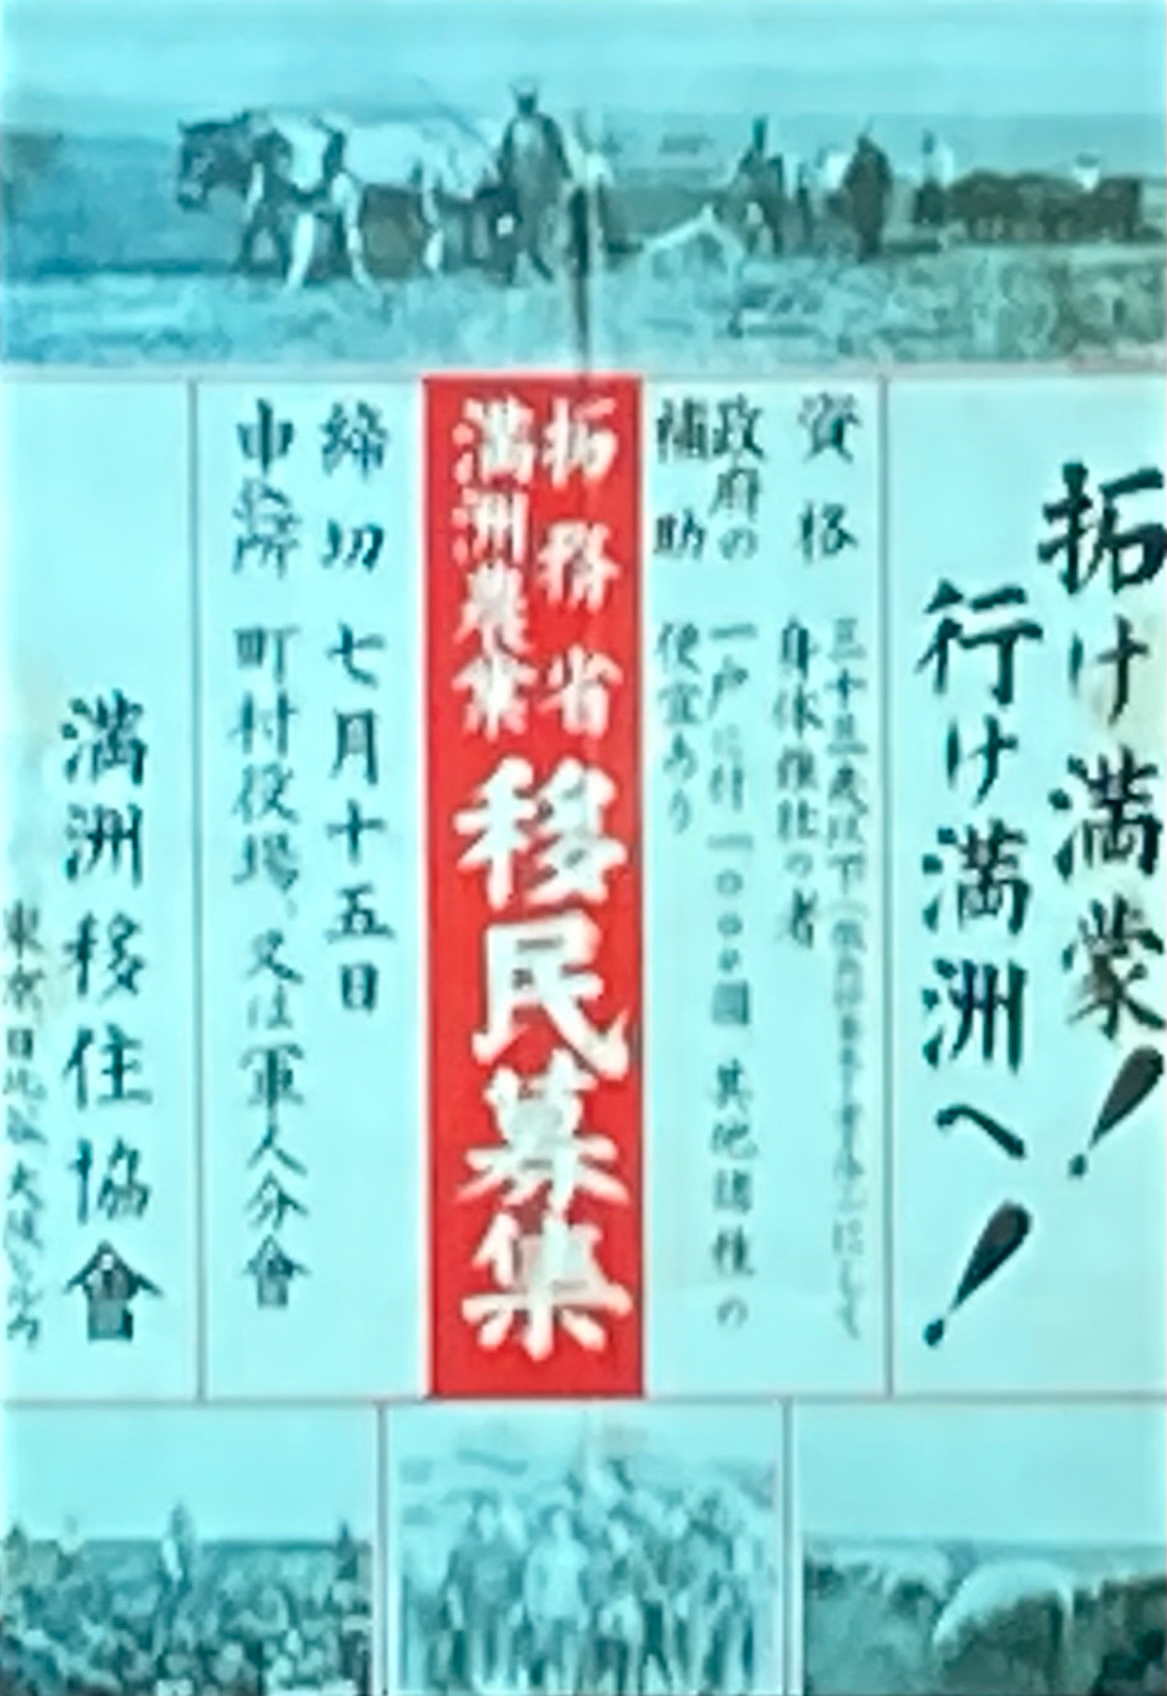 拓け満蒙!
行け満洲へ!
資格
三十五歳以下
身体強壮の者
政府の補助
一戸に付一〇〇〇圓 其他諸種の
便宜あり
拓務省
満洲農業
移民募集
締切 七月十五日
申込所 町村役場、又は軍人分會
満洲移住協會
東京・日比谷・大阪ビル内